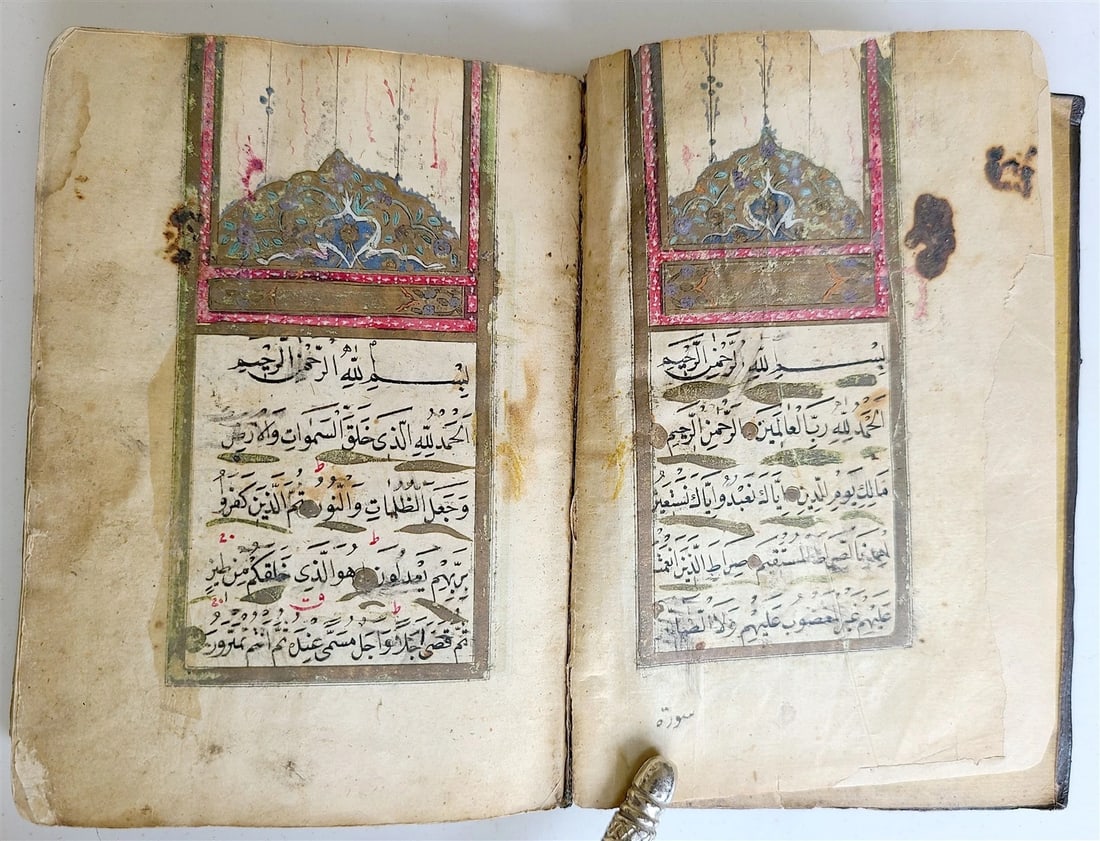 بِسْمِ اللهِ الرَّحْمٰنِ الرَّحِيْمِ
اَلْحَمْدُ لِلّٰهِ رَبِّ الْعَالَمِيْنَ الرَّحْمٰنِ الرَّحِيْمِ
مَالِكِ يَوْمِ الدِّيْنِ اِيَّاكَ نَعْبُدُ وَاِيَّاكَ نَسْتَعِيْنُ
اِهْدِنَا الصِّرَاطَ الْمُسْتَقِيْمَ صِرَاطَ الَّذِيْنَ اَنْعَمْتَ
عَلَيْهِمْ غَيْرِ الْمَغْضُوْبِ عَلَيْهِمْ وَلَا الضَّالِّيْنَ
سورة
بِسْمِ اللهِ الرَّحْمٰنِ الرَّحِيْمِ
اَلْحَمْدُ لِلّٰهِ الَّذِيْ خَلَقَ السَّمٰوَاتِ وَالْاَرْضَ
ط
وَجَعَلَ الظُّلُمَاتِ وَالنُّوْرَ ثُمَّ الَّذِيْنَ كَفَرُوْا
ط
بِرَبِّهِمْ يَعْدِلُوْنَ هُوَ الَّذِيْ خَلَقَكُمْ مِنْ طِيْنٍ
ط
ثُمَّ قَضٰى اَجَلًا وَاَجَلٌ مُسَمًّى عِنْدَهُ ثُمَّ اَنْتُمْ تَمْتَرُوْنَ